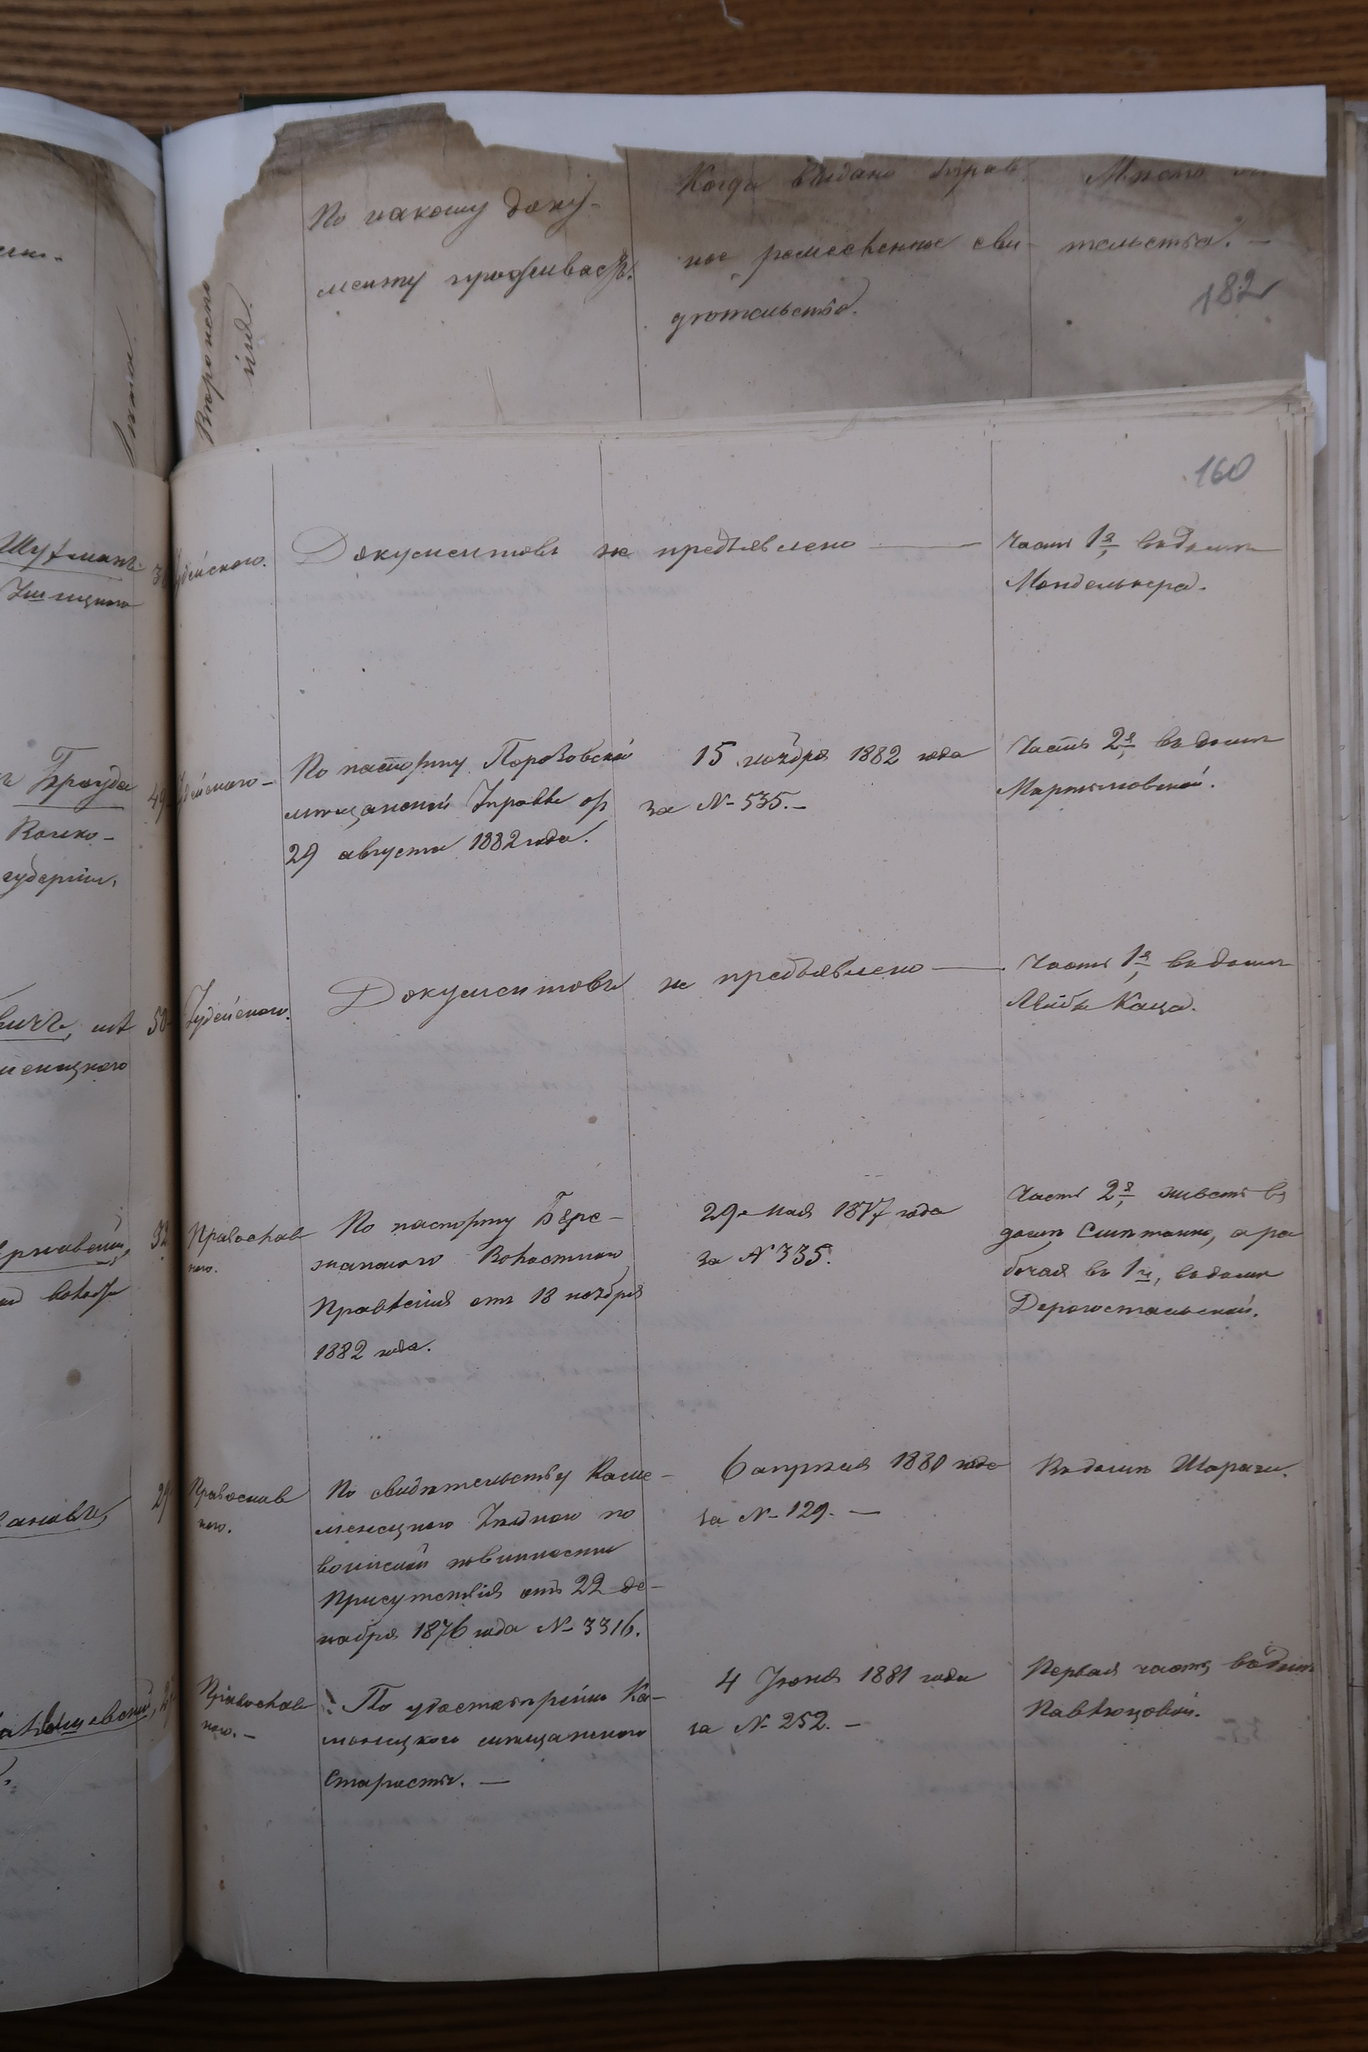 Вѣроисповѣ
нія.
По какому доку-
менту проживаетъ.
Когда выдано Управ
ное ремесленное сви-
дѣтельство.
Мѣсто
тельства. —
182
160
Шуфманъ
Ушицкого
Іудейского.
Документовъ не предъявлено —
Часть 1я, въ домѣ
Манделькера.
Брауда
49
Іудейского —
По паспорту Порозовской
мѣщанской Управы от
29 августа 1882 года.
15 ноября 1882 года
за № 535. —
Часть 2я, въ домѣ
Мартыновской.
Волко-
губерніи,
50
Іудейского.
Документовъ не предъявлено —
Часть 1я, въ домѣ
Лейбы Каца.
32
Православ
наго.
По паспорту Бере-
жанского Волостного
Правленія отъ 18 ноября
1882 года.
29 Мая 1877 года
за № 335.
Часть 2я, живетъ въ
домѣ , а ра
бочая въ 1й, въ домѣ
Дорогостальской.
29
Православ
наго.
По свидѣтельству Каме-
менецкого Уѣзднаго по
воинской повинности
Присутствія отъ 22 де-
кабря 1876 года № 3316.
6 апрѣля 1880 года
за № 129. —
Въ домѣ Шараги.
Православ
наго. —
По удостовѣренію Ка-
менецкого мѣщанского
Старосты. —
4 Іюня 1881 года
за № 252. —
Первая часть, въ домѣ
Павлюцовой.